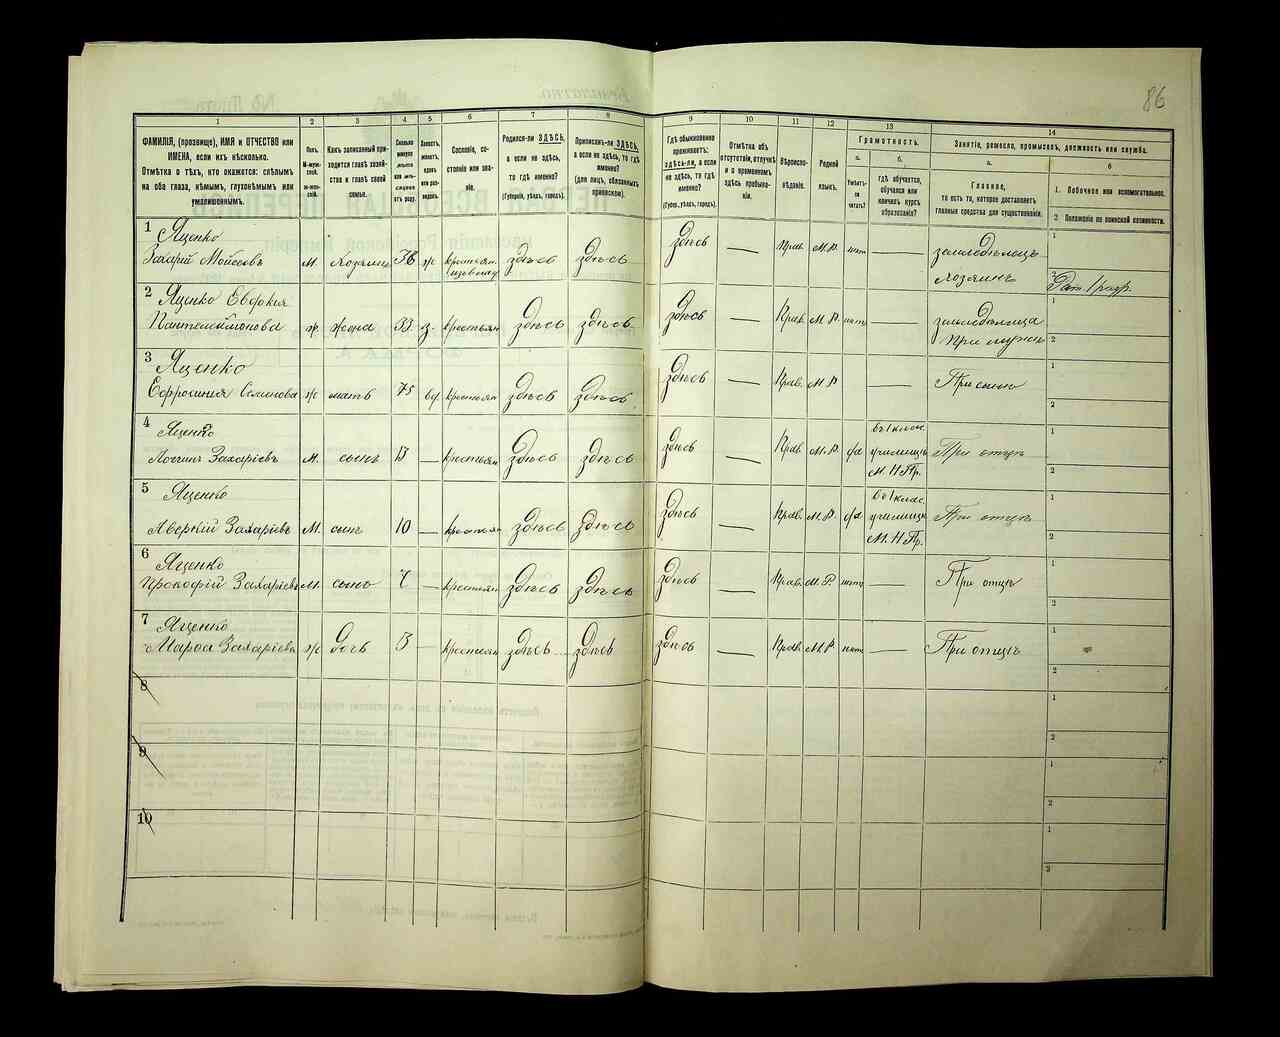 86
1
2
3
4
5
6
7
8
9
10
11
12
13
14
ФАМИЛІЯ, (прозвище), ИМЯ и ОТЧЕСТВО или
ИМЕНА, если ихъ нѣсколько.
Отмѣтка о тѣхъ, кто окажется: слѣпымъ
на оба глаза, нѣмымъ, глухонѣмымъ или
умалишеннымъ.
Полъ.
М-муж-
ской.
Ж-жен-
скій.
Какъ записанный при-
ходится главѣ хозяй-
ства и главѣ своей
семьи.
Сколько
минуло
лѣтъ
или мѣ-
сяцевъ
отъ роду.
Холостъ,
женатъ,
вдовъ
или раз-
веденъ.
Сословіе, со-
стояніе или зва-
ніе.
Родился-ли ЗДѢСЬ,
а если не здѣсь,
то гдѣ именно?
(Губернія, уѣздъ, городъ).
Приписанъ-ли ЗДѢСЬ,
а если не здѣсь, то гдѣ
именно?
(для лицъ, обязанныхъ
припискою).
Гдѣ обыкновенно
проживаетъ:
здѣсь-ли, а если
не здѣсь, то гдѣ
именно?
(Губер., уѣздъ, городъ).
Отмѣтка объ
отсутствіи, отлучкѣ
и о временномъ
здѣсь пребыва-
ніи.
Вѣроиспо-
вѣданіе.
Родной
языкъ.
Грамотность.
а.
Умѣетъ-
ли
читать?
б.
гдѣ обучается,
обучался или
кончилъ курсъ
образованія?
Занятіе, ремесло, промыселъ, должность или служба.
а.
Главное,
то есть то, которое доставляетъ
главныя средства для существованія.
б
1. Побочное или вспомогательное.
2 Положеніе по воинской повинности.
1 Яценко
Захарій Моисеевъ м. хозяинъ 36 ж крестьян. здѣсь здѣсь здѣсь — Прав. М.Р. нѣт — земледѣлецъ
хозяинъ
1
2 Рат. 1 разр.
2 Яценко Евфокия
Пантелеймонова ж. жена 33 з. крестьян здѣсь здѣсь здѣсь — Прав. М.Р. нѣт — земледѣлица
При мужѣ
1
2
3 Яценко
Ефросиния Семенова ж мать 75 вд. крестьян здѣсь здѣсь здѣсь — Прав. М.Р — При сынѣ
1
2
4 Яценко
Логгинъ Захаріевъ м. сынъ 13 — крестьян здѣсь здѣсь здѣсь — Прав М.Р. да въ 1 клас.
училищѣ
М. Н. Пр.
При отцѣ
1
2
5 Яценко
Аверкій Захаріевъ м. сынъ 10 — крестьян здѣсь здѣсь здѣсь — Прав. М.Р. да въ 1 клас.
училищѣ
М. Н. Пр.
При отцѣ
1
2
6 Яценко
Прокофій Захаріевъ м. сынъ 7 — крестьян здѣсь здѣсь здѣсь — Прав. М.Р. нѣт — При отцѣ
1
2
7 Яценко
Марѳа Захаріева ж дочь 3 — крестьян здѣсь здѣсь здѣсь — Прав. М.Р. нѣт — При отцѣ
1
2
8
1
2
9
1
2
10
1
2